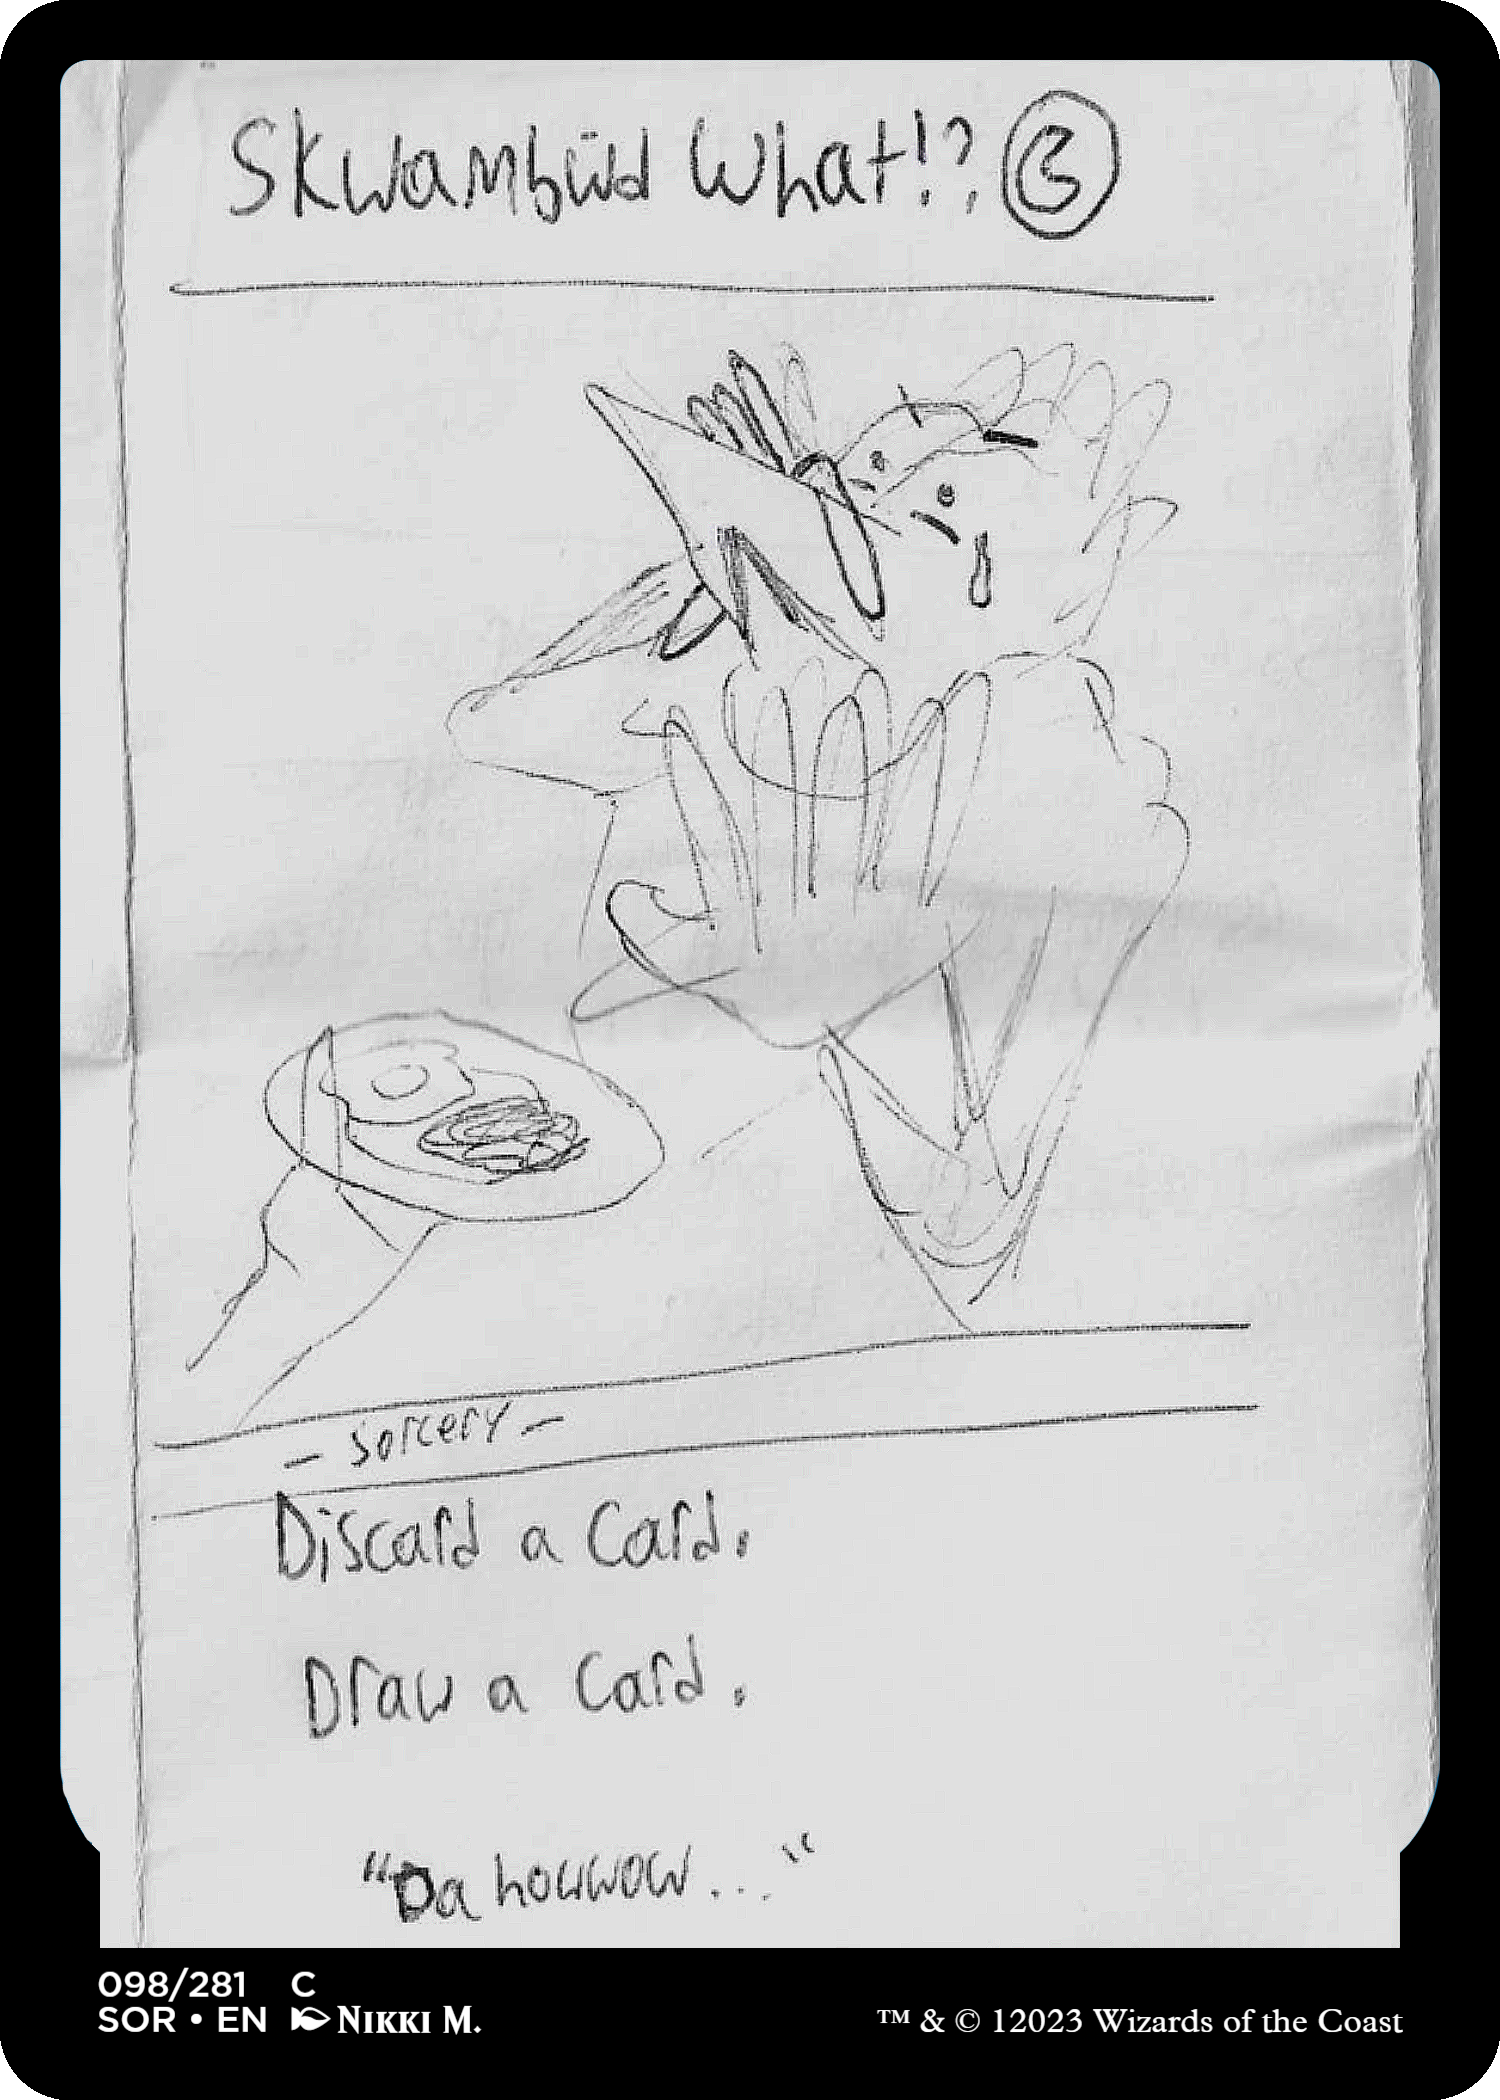 Skwambüd What!?
- sorcery -
Discard a Card.
Draw a Card.
"Da howwow..."
098/281 C
SOR • EN NIKKI M.
™ & © 12023 Wizards of the Coast